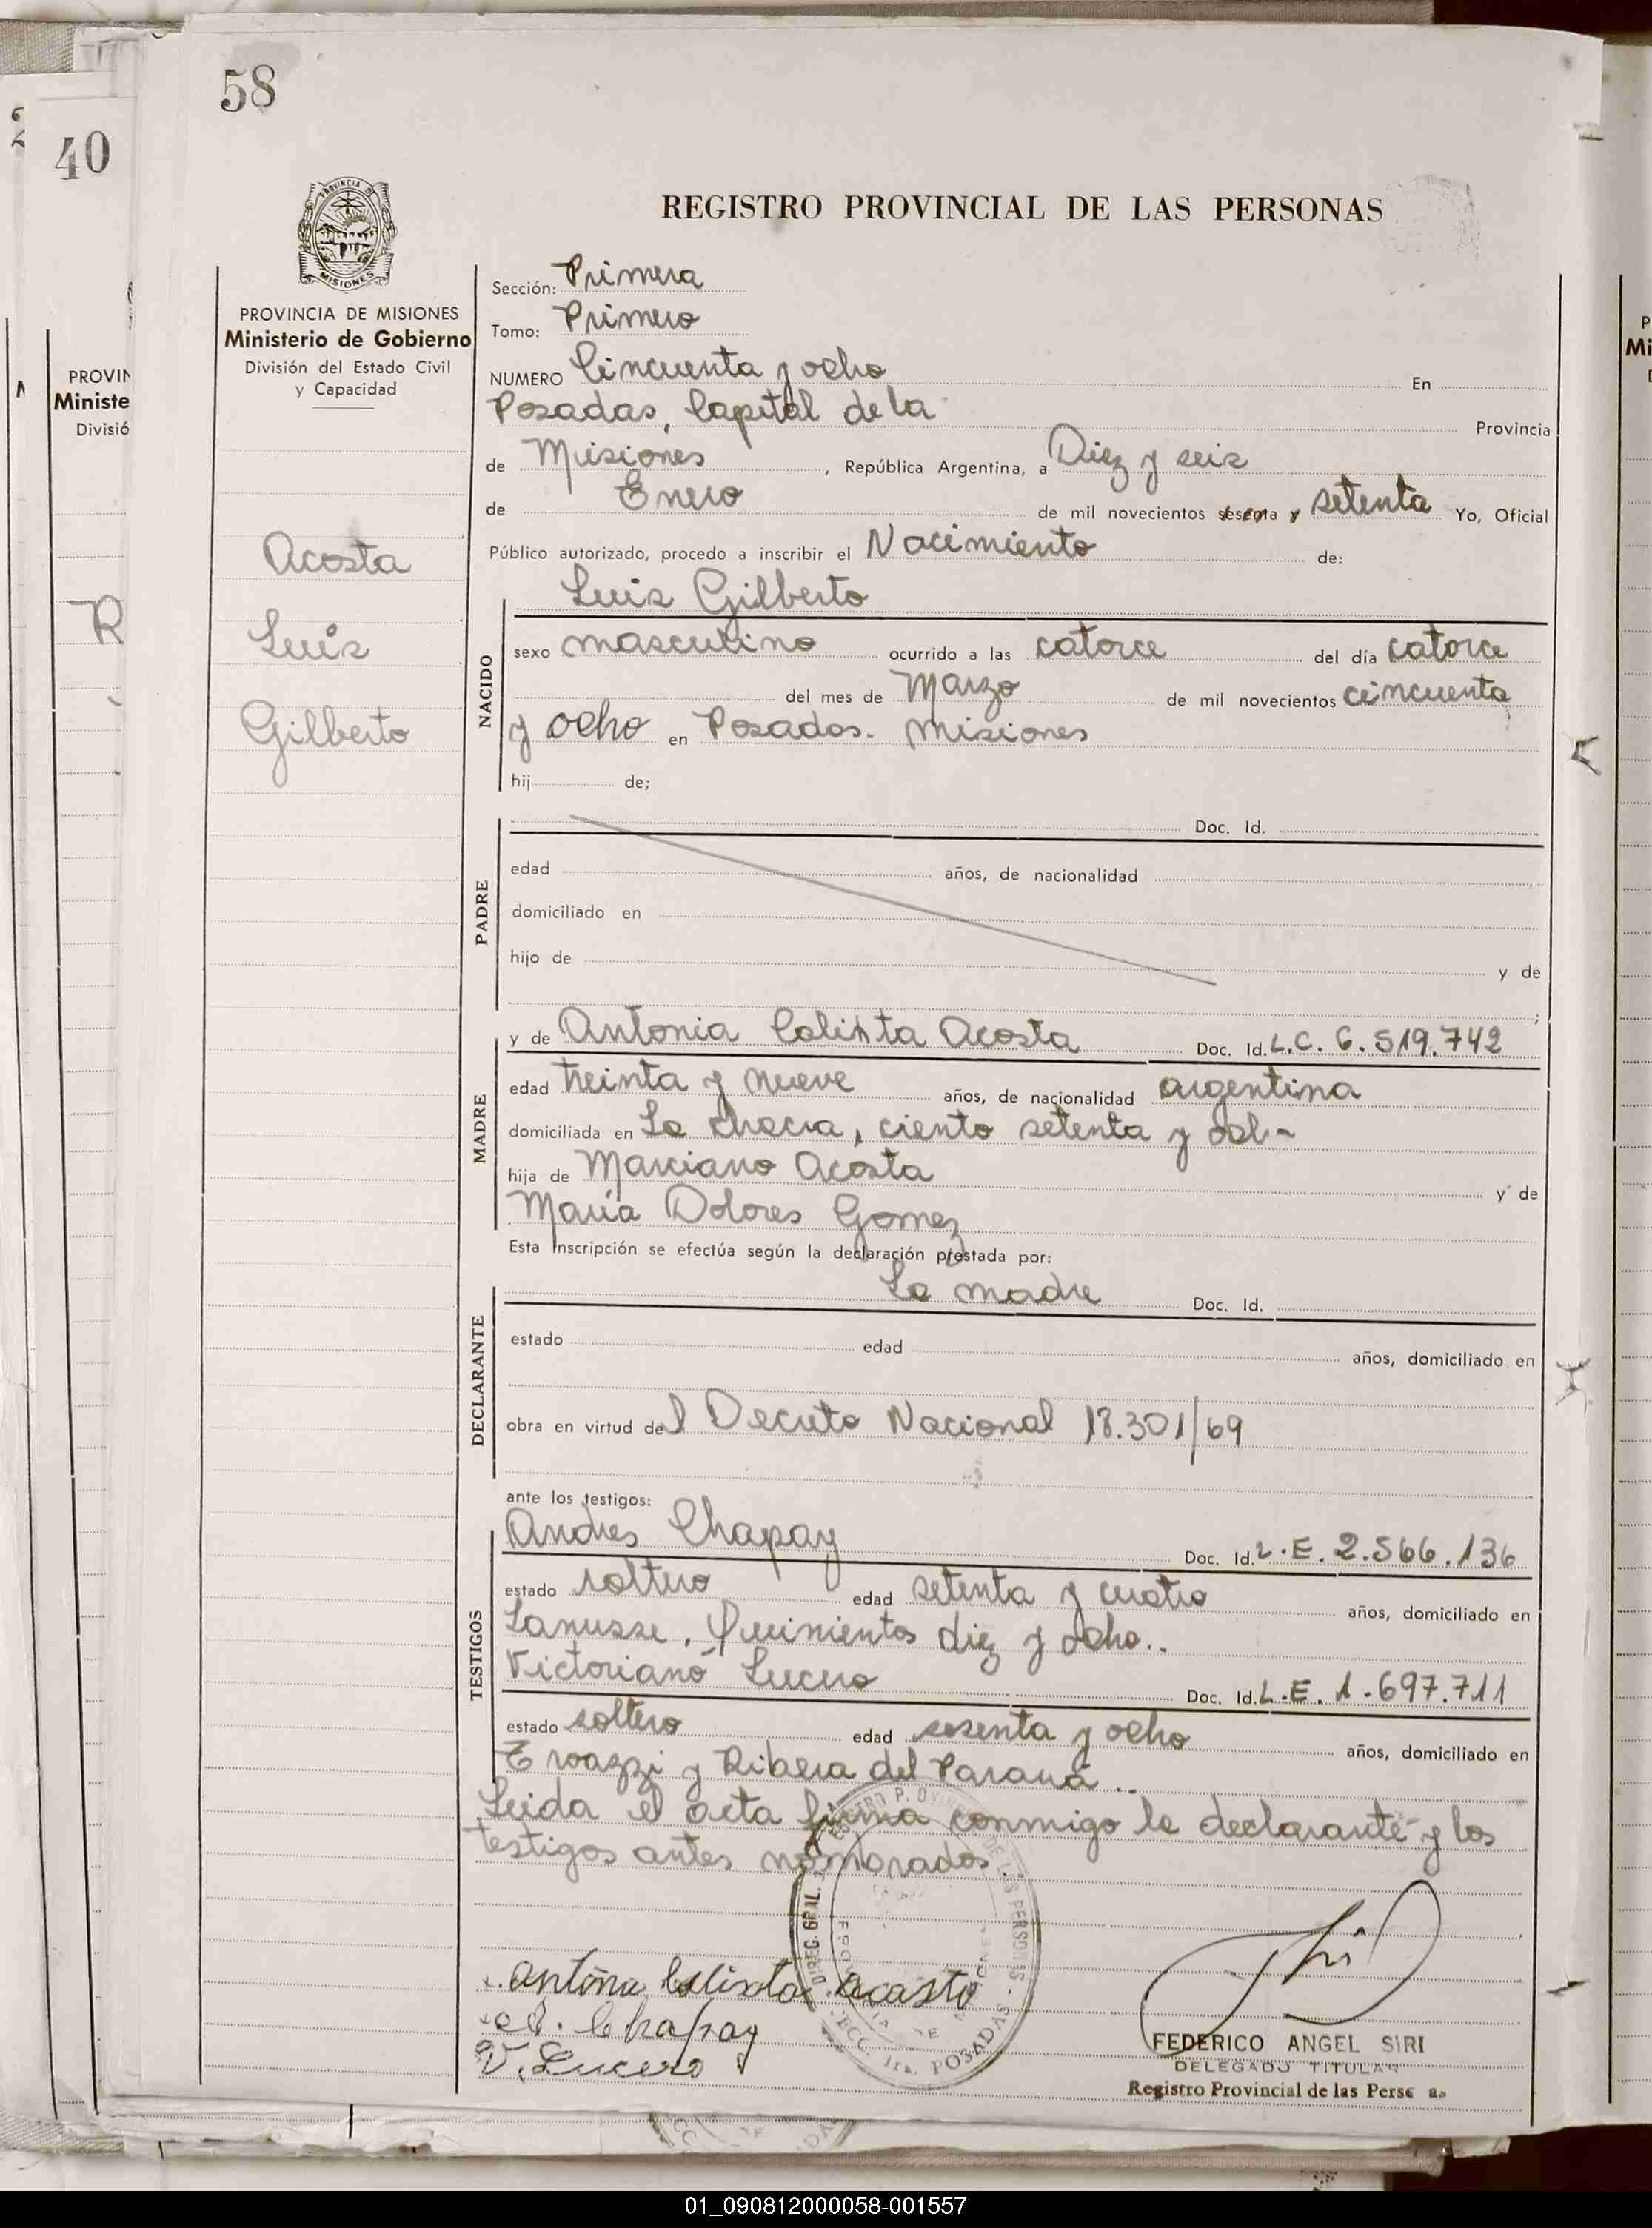 58
40
PROVINCIA DE MISIONES
REGISTRO PROVINCIAL DE LAS PERSONAS
PROVINCIA DE MISIONES
Ministerio de Gobierno
División del Estado Civil
y Capacidad
Acosta
Luis
Gilberto
Sección: Primera
Tomo: Primero
NUMERO Cincuenta y ocho En
Posadas, Capital de la Provincia
de Misiones, República Argentina, a Diez y seis
de Enero de mil novecientos sesenta y setenta Yo, Oficial
Público autorizado, procedo a inscribir el Nacimiento de:
NACIDO
Luis Gilberto
sexo masculino ocurrido a las catorce del día catorce
del mes de Marzo de mil novecientos cincuenta
y ocho en Posadas. Misiones
hij de;
PADRE
Doc. Id.
edad años, de nacionalidad
domiciliado en
hijo de y de
MADRE
y de Antonia Calixta Acosta Doc. Id. L.C. 6.519.742
edad treinta y nueve años, de nacionalidad argentina
domiciliada en La chacra, ciento setenta y
hija de Marciano Acosta y de
María Dolores Gomez
Esta inscripción se efectúa según la declaración prestada por:
DECLARANTE
La madre Doc. Id.
estado edad años, domiciliado en
obra en virtud del Decreto Nacional 18.301/69
ante los testigos:
TESTIGOS
Andres Chapay Doc. Id. L.E. 2.566.136
estado soltero edad setenta y cuatro años, domiciliado en
Lanusse, Quinientos diez y ocho..
Victoriano Lucero Doc. Id. L.E. 1.697.711
estado soltero edad sesenta y ocho años, domiciliado en
y Ribera del Paraná..
Leida el acta firma conmigo la declarante y los
testigos antes nombrados
x. Antona Calixta Acosto
A. Chapay
V. Lucero
DIREG. GRAL. REGISTRO PROVINCIAL DE LAS PERSONAS - SECC. 1ra. POSADAS -
FEDERICO ANGEL SIRI
DELEGADO TITULAR
Registro Provincial de las Perse as
PROVIN
Ministe
Divisió
R
P
Mi
01_090812000058-001557